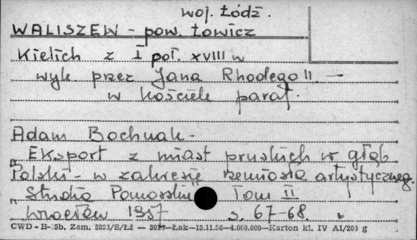 woj. Łódź.
WALISZEW - pow. Łowicz
Kielich z I poł. XVIII w
wyk. przez Jana Rhodego II. —
w kościele paraf.
Adam Bochnak -
"Eksport z miast pruskich w głąb
Polski - w zakresie rzemiosła artystycznego
"Studia Pomorskie" Tom II
Wrocław 1957 s. 67-68.
CWD - B-15b, Zam. 5323/S/Łź — -Łak—15.11.56—4.000.000—Karton kl. IV A1/200 g